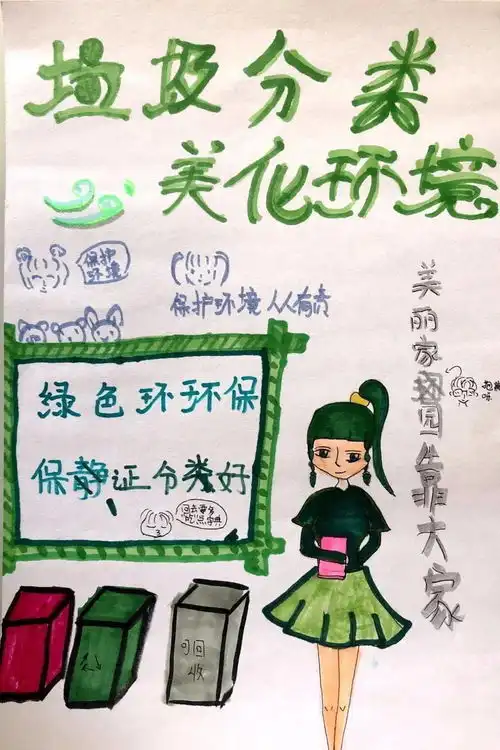 垃圾分类
美化环境
保护
环境
保护环境 人人有责
美丽家园靠大家
绿色环环保
保静证分类好
回去要多
吃点字典
可回
收